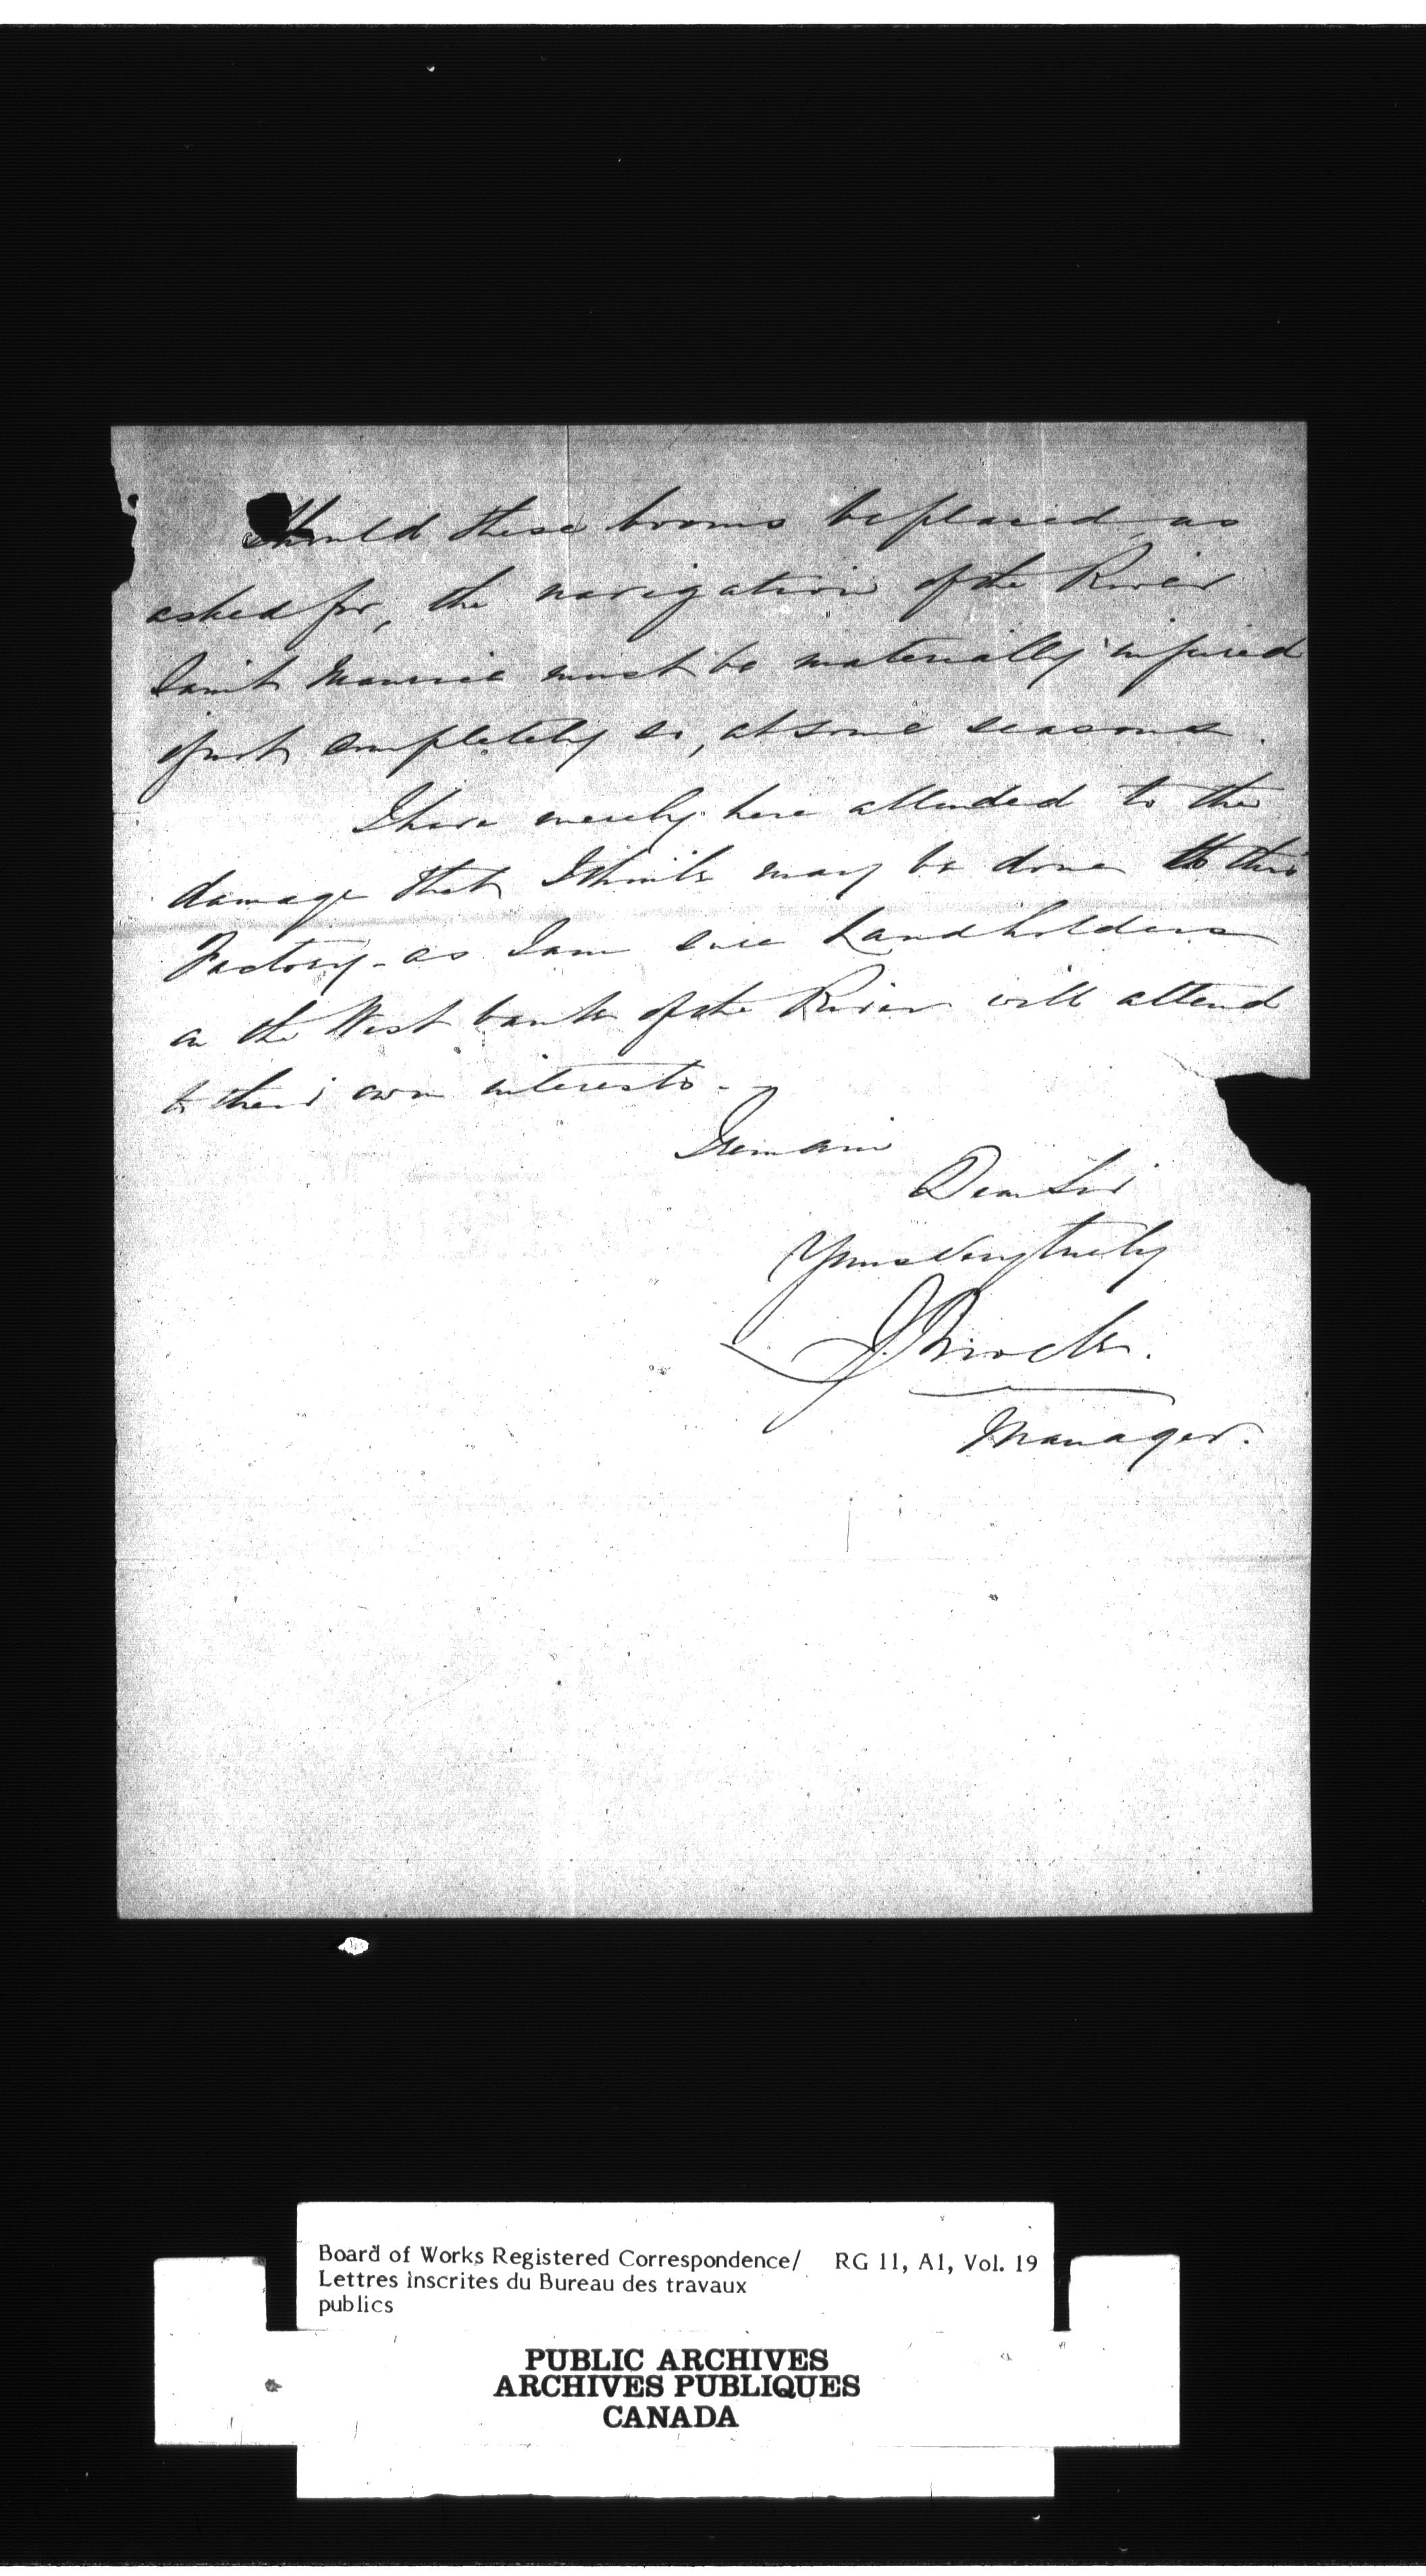 Should these booms be placed, as
asked for, the navigation of the River
Saint Maurice must be materially injured
if not completely so, at some seasons.
I have merely here alluded to the
damage that I think may be done to this
Factory - as I am sure Landholders
on the West bank of the River will attend
to their own interests -
I remain
Dear Sir
Yours very truly
J. Brock.
Manager.
Board of Works Registered Correspondence/ RG 11, A1, Vol. 19
Lettres inscrites du Bureau des travaux
publics
PUBLIC ARCHIVES
ARCHIVES PUBLIQUES
CANADA